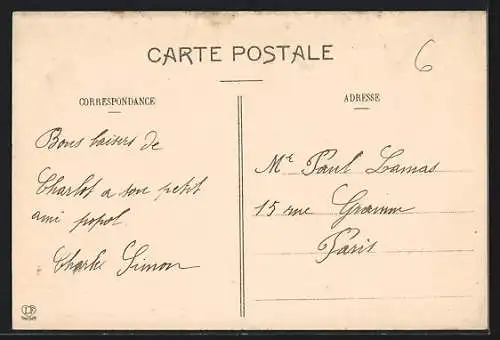 CARTE POSTALE
6
CORRESPONDANCE
ADRESSE
Bons baisers de
Charlot a son petit
ami popol
Charles Simon
Mr Paul Lamas
15 rue
Paris